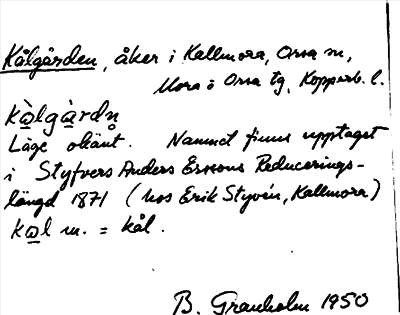 Kålgården, åker i Kallmora, Orsa sn,
Mora o Orsa tg, Kopparb. l.
kålgàrdn̥
Läge okänt. Namnet finns upptaget
i Styfvers Anders Erssons Reducerings-
längd 1871 (hos Erik Styvén, Kallmora)
kål m. = kål.
B. Granholm 1950